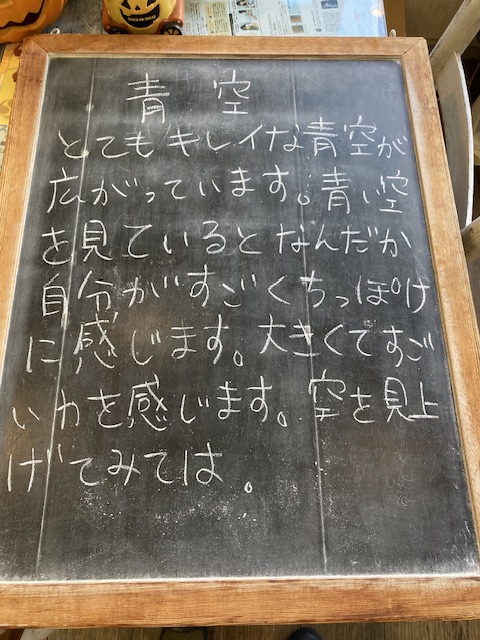 青空
とてもキレイな青空が
広がっています。青い空
を見ているとなんだか
自分がすごくちっぽけ
に感じます。大きくてすご
い力を感じます。空を見上
げてみては。